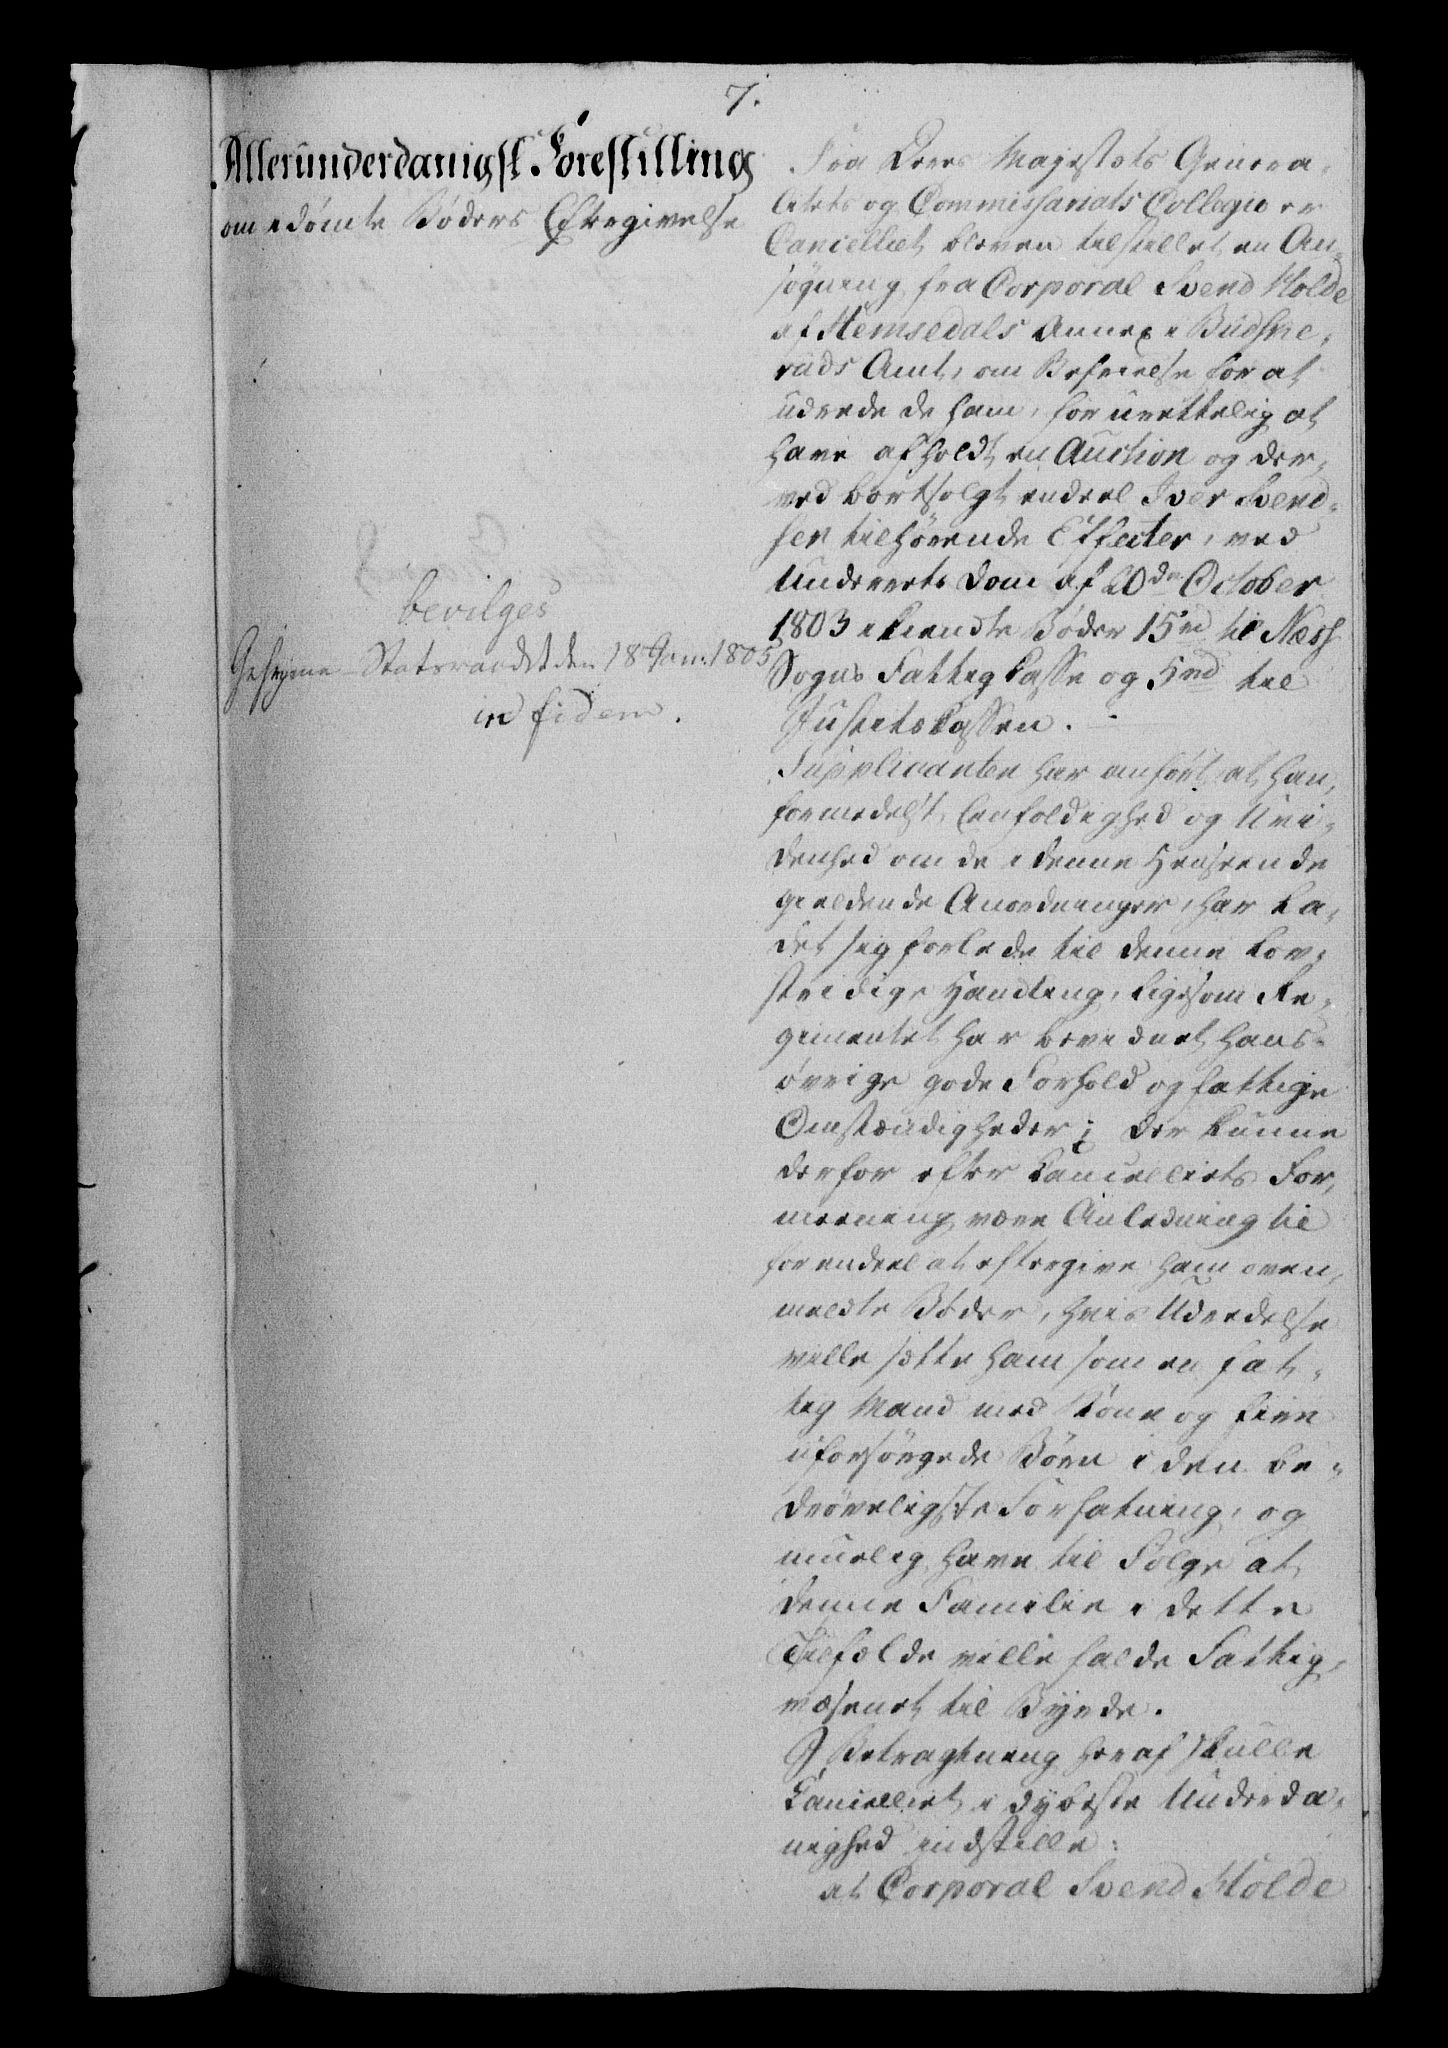 7.
Allerunderdanigst Forestilling
om idømte Bøders Eftergivelse
bevilges
Geheime-Statsraadet den 18 Janv: 1805
in fidem.
Fra Deres Majestæts Genera-
litets og Commissariats Collegie er
Cancelliet bleven tilstillet en An-
søgning fra Corporal Svend Holde
af Hemsedals Annex i Budske-
ruds Amt, om Befrielse for at
udrede de ham, for urettelig at
have afholdt en Auction og der-
ved bortsolgt endeel Iver Svend-
sen tilhørende Effecter, ved
Underrets Dom af 20de October
1803 ikiendte Bøder 15 rd til Næss
Sogns Fattigkasse og 5 rd til
Justitskassen.
Supplicanten har anført at han,
formedelst Eenfoldighed og Uvi-
denhed om de i denne Henseende
gieldende Anordninger, har la-
det sig forlede til denne lov-
stridige Handling, ligesom Re-
gimentet har bevidnet hans
øvrige gode Forhold og fattige
Omstændigheder; der kunne
derfor efter Cancelliets For-
meening være Anledning til
for endeel at eftergive ham oven-
meldte Bøder, hvis Udredelse
ville sætte ham som en fat-
tig Mand med Kone og fire
uforsørgede Børn i den be-
drøveligste Forfatning, og
muelig have til Følge at
denne Familie i dette
Tilfælde ville falde Fattig-
væsenet til Byrde.
I Betragtning heraf skulle
Cancelliet i dybeste Underda-
nighed indstille:
at Corporal Svend Holde